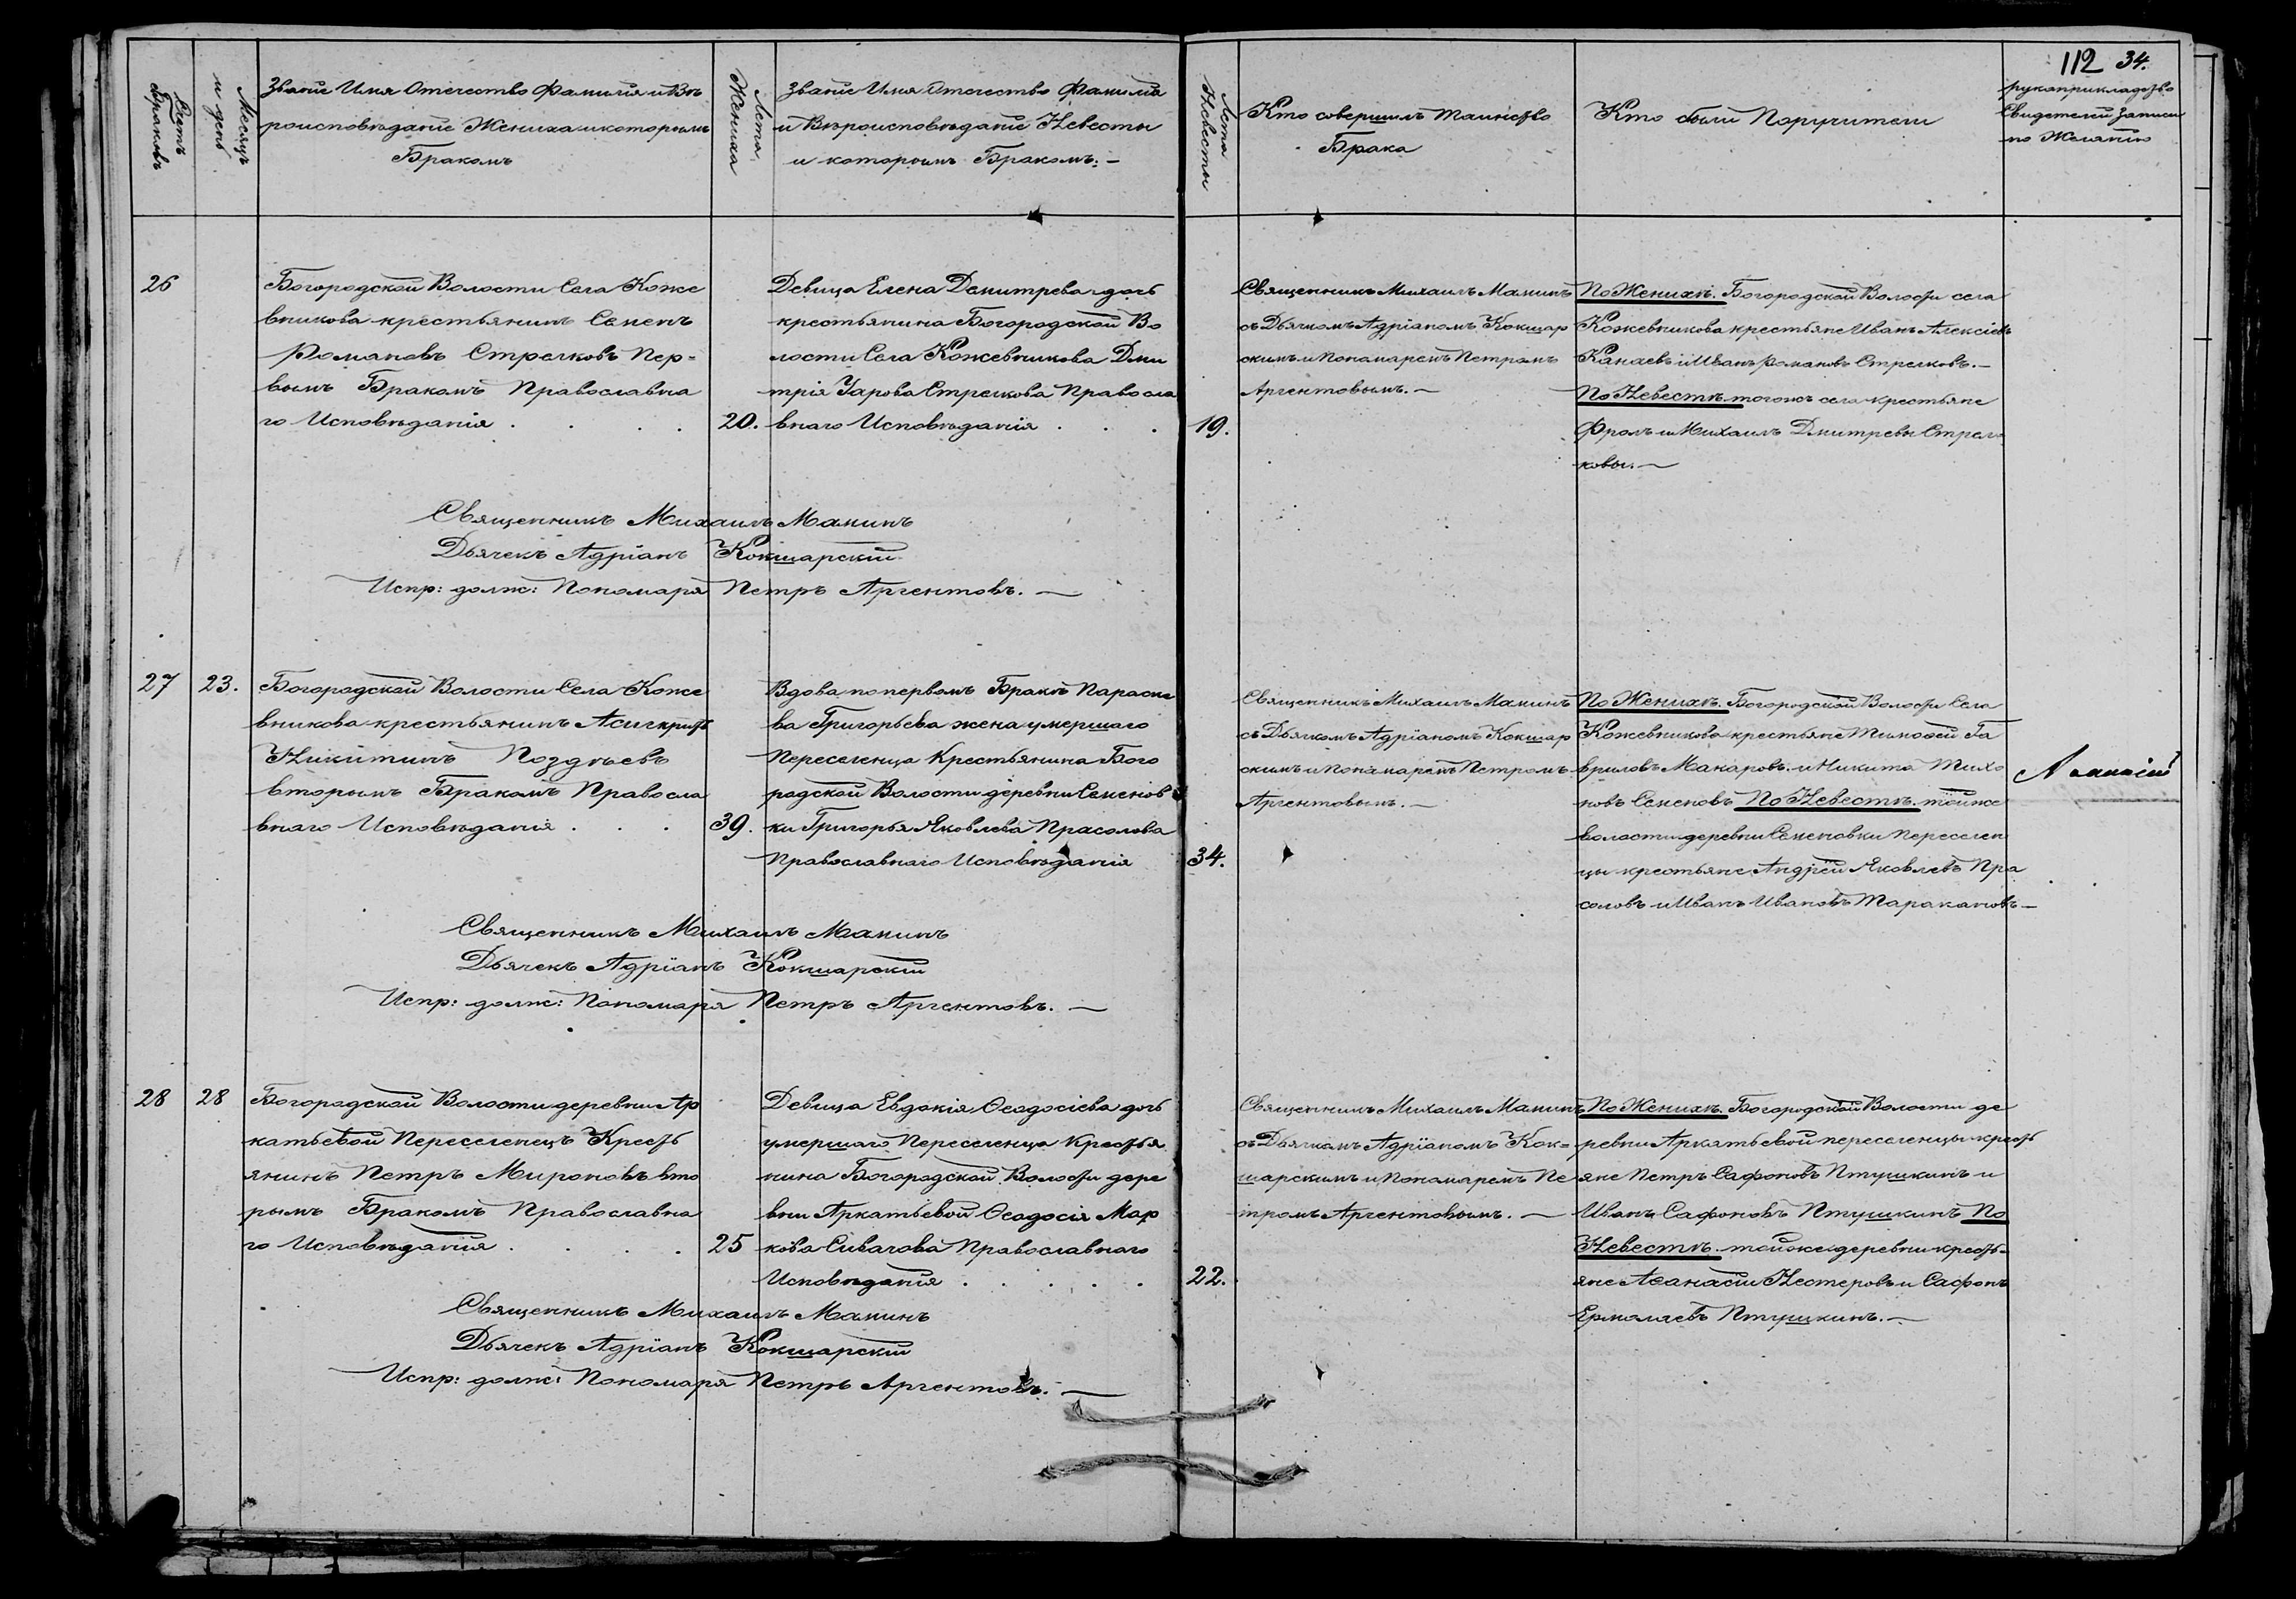 112 34.
Счетъ Браковъ
Месяцъ и день
Званіе Имя Отечество Фамилія и Вѣ
роисповѣданіе Жениха и которымъ
Бракомъ
Лета Жениха
Званіе Имя Отечество Фамилія
и Вѣроисповѣданіе Невесты
и которымъ Бракомъ: —
Лета Невесты
Кто совершилъ таинство
Брака
Кто были Поручители
рукоприкладство
Свидетелей записи
по Желанію
26
Богородской Волости Села Коже
вникова крестьянинъ Семенъ
Романовъ Стрелковъ Пер-
вымъ Бракомъ Православна
го Исповѣданія . . . .
20.
Девица Елена Демитрева дочь
крестьянина Богородской Во
лости Села Кожевникова Дми
трія Уарова Стрелкова Правосла
внаго Исповѣданія . . .
19.
Священникъ Михаилъ Маминъ
съ Дьячкомъ Адріаномъ Кокшар
скимъ и Пономаремъ Петромъ
Аргентовымъ. —
По Женихѣ. Богородской Волости села
Кожевникова крестьяне Иванъ Алексіевъ
Канаевъ и Иванъ Романовъ Стрелковъ. —
По Невестѣ тогожъ села крестьяне
Фролъ и Михаилъ Дмитревы Стрел
ковы. —
Священникъ Михаилъ Маминъ
Дьячекъ Адріанъ Кокшарскій
Испр: долж: Пономаря Петръ Аргентовъ. —
27
23.
Богородской Волости Села Коже
вникова крестьянинъ Асигкритъ
Никитинъ Позднѣевъ
вторымъ Бракомъ Правосла
внаго Исповѣданія . . .
39.
Вдова по первомъ Бракѣ Параске
ва Григорьева жена умершаго
Переселенца Крестьянина Бого
родской Волости деревни Семенов
ки Григорья Яковлева Прасолова
Православнаго Исповѣданія
34.
Священникъ Михаилъ Маминъ
съ Дьячкомъ Адріаномъ Кокшар
скимъ и Пономаремъ Петромъ
Аргентовымъ. —
По Женихѣ. Богородской Волости Села
Кожевникова крестьяне Тимофей Га
вриловъ Макаровъ и Никита Тихо
новъ Семеновъ По Невестѣ. тойже
волости деревни Семеновки Переселен
цы крестьяне Андрей Яковлевъ Пра
соловъ и Иванъ Ивановъ Таракановъ —
Священникъ Михаилъ Маминъ
Дьячекъ Адріанъ Кокшарскій
Испр: долж: Пономаря Петръ Аргентовъ. —
28
28
Богородской Волости деревни Ар
катьевой Переселенецъ Кресть
янинъ Петръ Мироновъ вто
рымъ Бракомъ Православна
го Исповѣданія . . . .
25
Девица Евдокія Ѳеодосіева дочь
умершаго Переселенца Крестья
нина Богородской Волости дере
вни Аркатьевой Ѳеодосія Мар
кова Сивагова Православнаго
Исповѣданія . . . . .
22.
Священникъ Михаилъ Маминъ
съ Дьячкомъ Адріаномъ Кок=
шарскимъ и Пономаремъ Пе
тромъ Аргентовымъ. —
По Женихѣ. Богородской Волости де
ревни Аркатьевой переселенцы кресть
яне Петръ Сафоновъ Птушкинъ и
Иванъ Сафоновъ Птушкинъ По
Невестѣ. тойже деревни кресть-
яне Аѳанасій Нестеровъ и Сафонъ
Ермолаевъ Птушкинъ. —
Священникъ Михаилъ Маминъ
Дьячекъ Адріанъ Кокшарскій
Испр: долж: Пономаря Петръ Аргентовъ. —